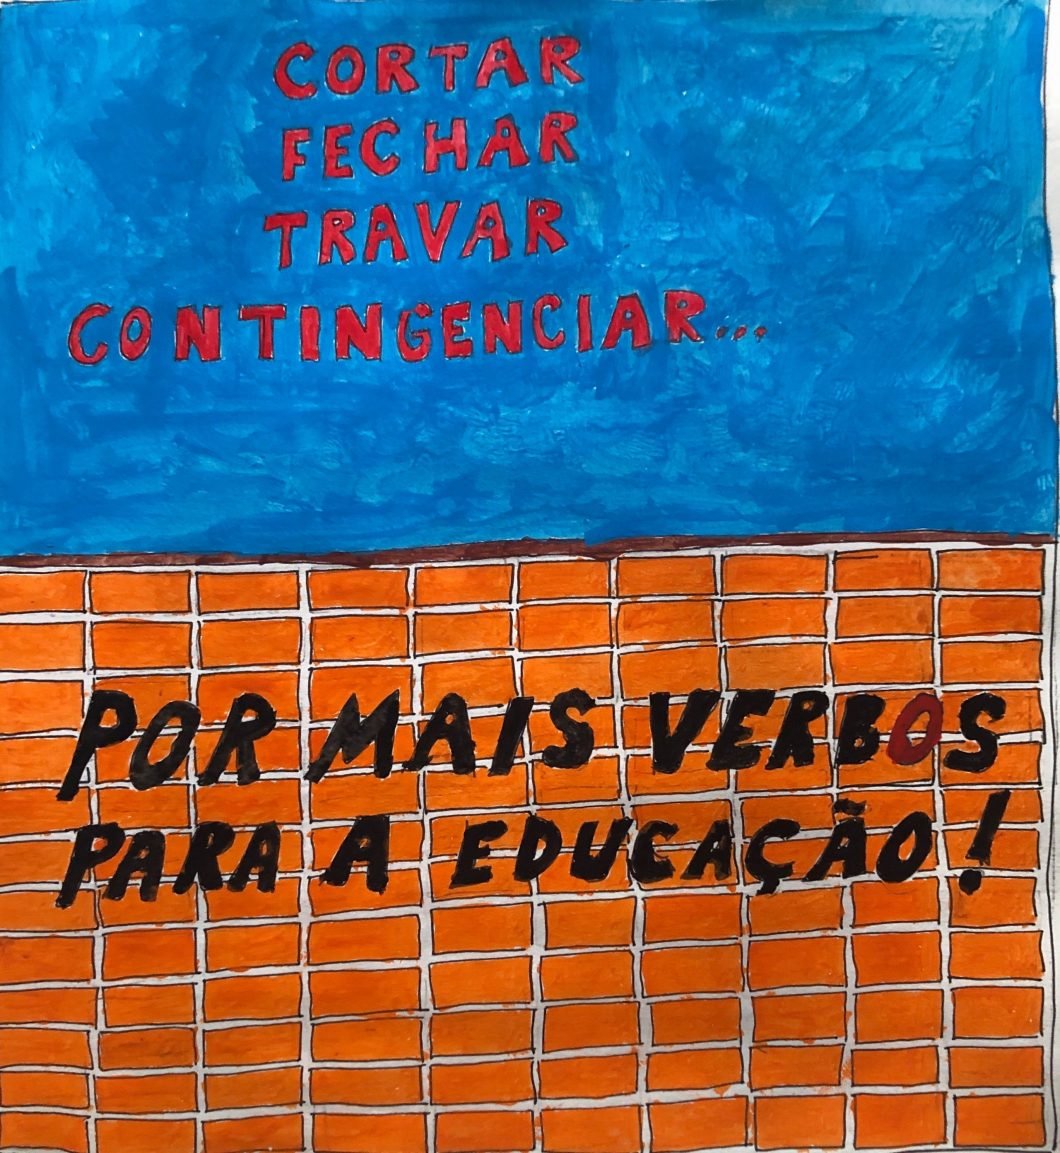 CORTAR
FECHAR
TRAVAR
CONTINGENCIAR...
POR MAIS VERBOS
PARA A EDUCAÇÃO!